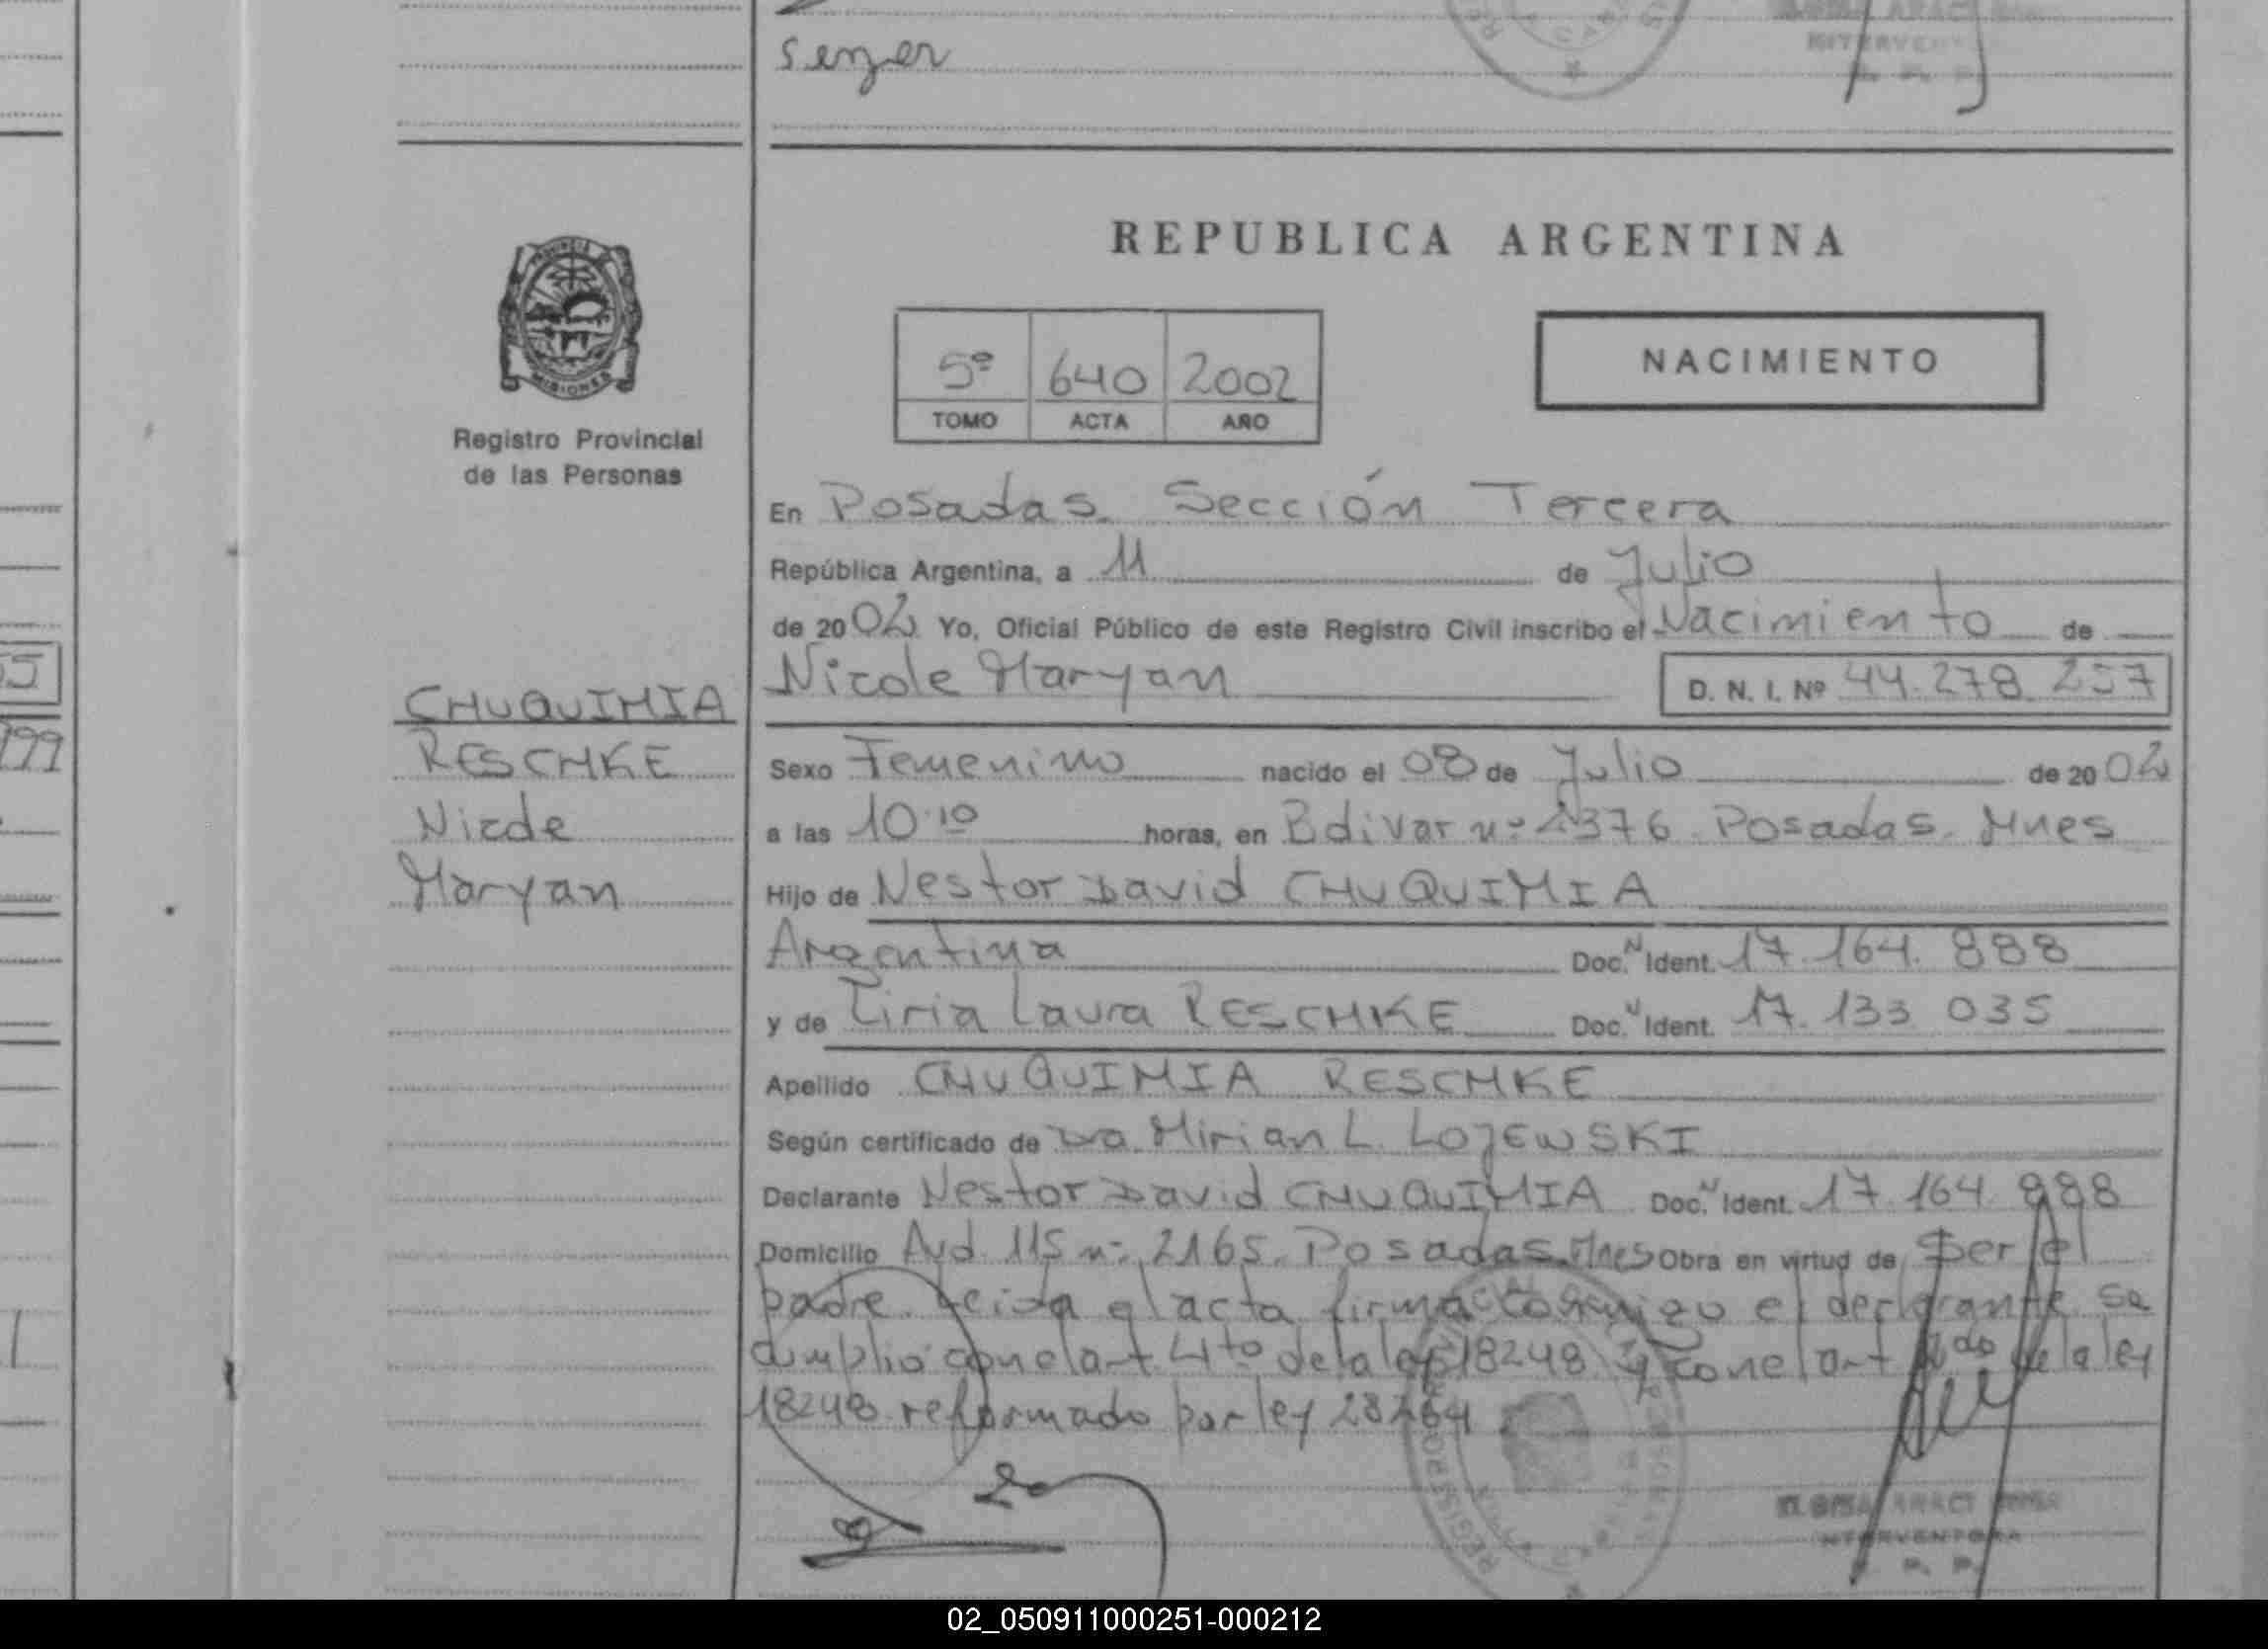 senzer
REPUBLICA ARGENTINA
MISIONES
5º 640 2002
TOMO ACTA AÑO
NACIMIENTO
Registro Provincial
de las Personas
En Posadas. Sección Tercera
República Argentina, a 11 de Julio
de 2002 Yo, Oficial Público de este Registro Civil inscribo el Nacimiento de
Nicole Maryan D. N. I. Nº 44.278.257
CHUQUIMIA
RESCHKE
Nicole
Maryan
Sexo Femenino nacido el 08 de Julio de 2002
a las 10.10 horas, en Bolivar nº 2376 Posadas. Mnes
Hijo de Nestor David CHUQUIMIA
Argentina Doc. N Ident. 17.164.888
y de Liria Laura RESCHKE Doc. N Ident. 17.133.035
Apellido CHUQUIMIA RESCHKE
Según certificado de Dra. Mirian L. LOJEWSKI
Declarante Nestor David CHUQUIMIA Doc. N Ident. 17.164.888
Domicilio Avd. 115 nº 2165. Posadas. Mnes Obra en virtud de Ser el
padre. Leida el acta firma conmigo el declarante se
cumplio con el art 4to de la ley 18248 y con el art 2do de la ley
18248 reformado por ley
INTERVENTORA
02_050911000251-000212